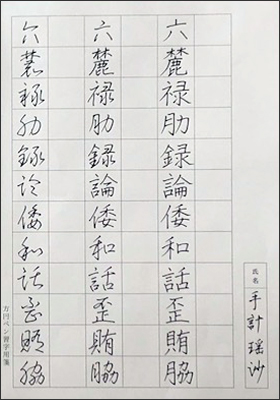 氏名
手計 瑶沙
六麓禄肋録論倭和話歪賄脇
六麓禄肋録論倭和話歪賄脇
六麓禄肋録論倭和話歪賄脇
方円ペン習字用箋